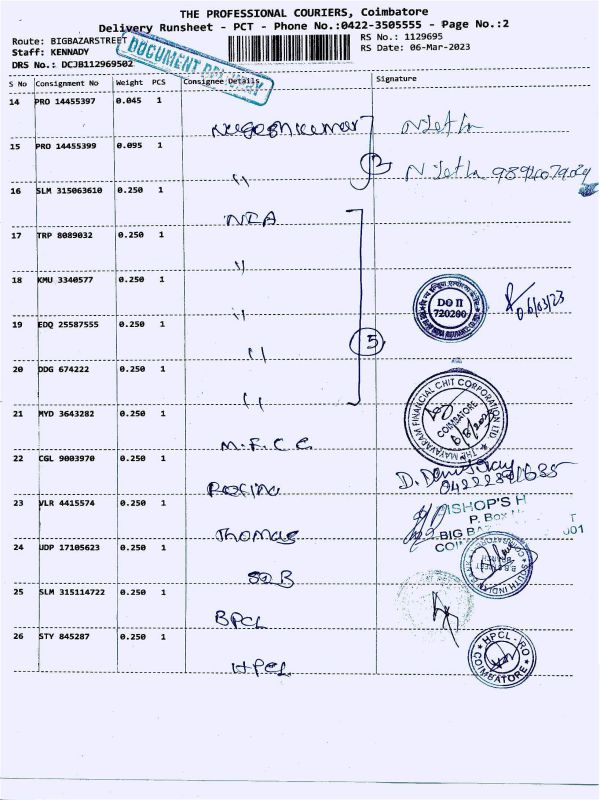 THE PROFESSIONAL COURIERS, Coimbatore
Delivery Runsheet - PCT - Phone No.:0422-3505555 - Page No.:2
Route: BIGBAZARSTREET
RS No.: 1129695
Staff: KENNADY
RS Date: 06-Mar-2023
DRS No.: DCJB112969502
DOCUMENT DELIVERY
S No Consignment No Weight PCS Consignee Details Signature
14 PRO 14455397 0.045 1
15 PRO 14455399 0.095 1
2
16 SLM 315063610 0.250 1
NIA
17 TRP 8089032 0.250 1
〃
18 KMU 3340577 0.250 1
〃
DO II
720200
06/03/23
19 EDQ 25587555 0.250 1
〃
5
20 DDG 674222 0.250 1
〃
THE MAYAVARAM FINANCIAL CHIT CORPORATION LTD.
COIMBATORE
21 MYD 3643282 0.250 1
M.F.C.C
22 CGL 9003970 0.250 1
23 VLR 4415574 0.250 1
Thomas
BISHOP'S H
P. Box
BIG BA
001
24 UDP 17105623 0.250 1
SIB
SOUTH INDIAN
25 SLM 315114722 0.250 1
BPCL
26 STY 845287 0.250 1
HPCL
HPCL - RO
COIMBATORE